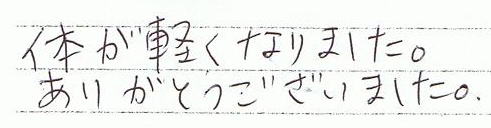 体が軽くなりました。
ありがとうございました。